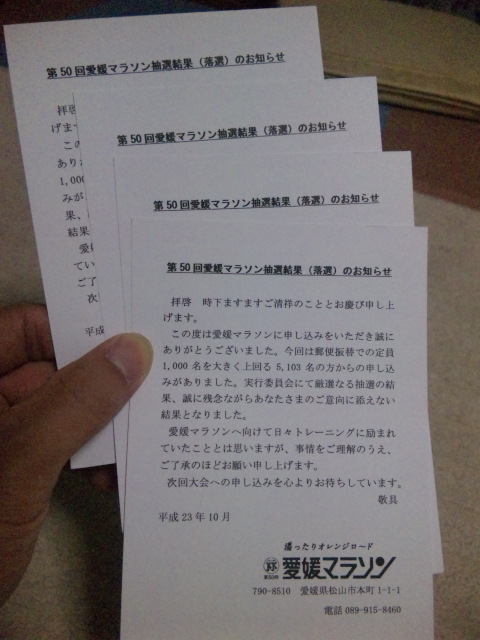 第50回愛媛マラソン抽選結果（落選）のお知らせ
拝啓
げます
この
ありが
1,000
みが
果、
結果
愛
てい
ご了
次
平成
第50回愛媛マラソン抽選結果（落選）のお知らせ
第50回愛媛マラソン抽選結果（落選）のお知らせ
第50回愛媛マラソン抽選結果（落選）のお知らせ
拝啓　時下ますますご清祥のこととお慶び申し上
げます。
この度は愛媛マラソンに申し込みをいただき誠に
ありがとうございました。今回は郵便振替での定員
1,000名を大きく上回る5,103名の方からの申し込
みがありました。実行委員会にて厳選なる抽選の結
果、誠に残念ながらあなたさまのご意向に添えない
結果となりました。
愛媛マラソンへ向けて日々トレーニングに励まれ
ていたこととは思いますが、事情をご理解のうえ、
ご了承のほどお願い申し上げます。
次回大会への申し込みを心よりお待ちしています。
敬具
平成23年10月
湯ったりオレンジロード
第50回 愛媛マラソン
790-8510　愛媛県松山市本町1-1-1
電話 089-915-8460